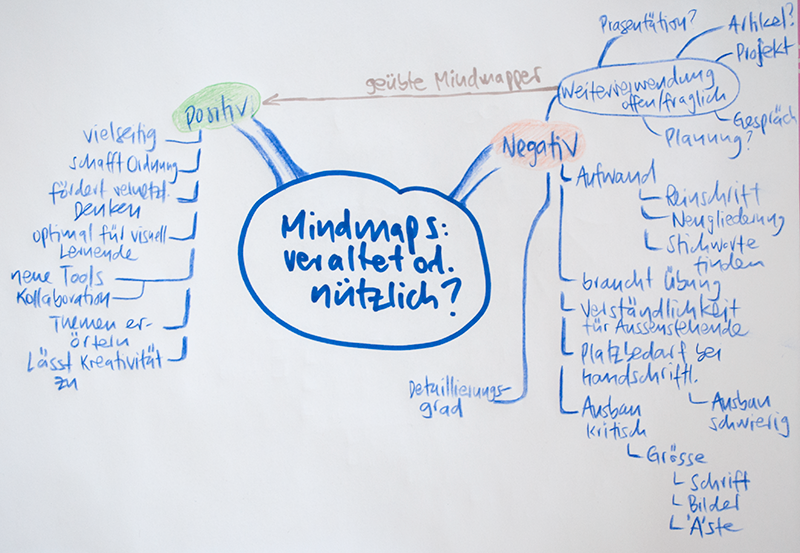 Mindmaps:
veraltet od.
nützlich?
Positiv
vielseitig
schafft Ordnung
fördert vernetzt.
Denken
optimal für visuell
Lernende
neue Tools
Kollaboration
Themen er-
örtern
Lässt Kreativität
zu
geübte Mindmapper
Negativ
Weiterverwendung
offen/fraglich
Präsentation?
Artikel?
Projekt
Gespräch
Planung?
Aufwand
Reinschrift
Neugliederung
Stichworte
finden
braucht Übung
Verständlichkeit
für Aussenstehende
Platzbedarf bei
handschriftl.
Ausbau
schwierig
Ausbau
kritisch
Grösse
Schrift
Bilder
Äste
Detaillierungs-
grad